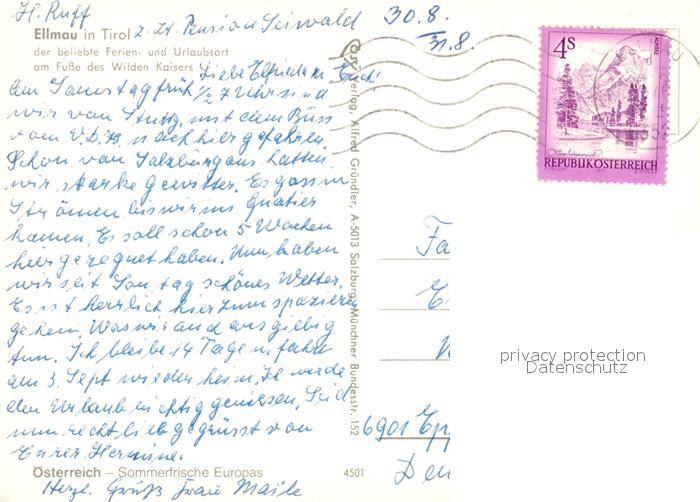 H. Ruff
Ellmau in Tirol z. Zt. Pension Seiwald
der beliebte Ferien- und Urlaubsort
am Fuße des Wilden Kaisers
30.8.
31.8.
Liebe Elfriede u. Erich!
Am Samstag früh ½ 7 Uhr sind
wir von Stuttg. mit dem Buss
vom V.D.K. nach hier gefahren.
Schon von Salzburg aus hatten
wir starke Gewitter. Es goss in
Strömen bis wir ins Quatier
kamen. Es soll schon 5 Wochen
hier geregnet haben. Nun haben
wir seit Sonntag schönes Wetter.
Es ist herrlich hier zum spazieren
gehen. Was wir auch ausgiebig
tun. Ich bleibe 14 Tage u. fahre
am 3. Sept wieder heim. Ich werde
den Urlaub richtig geniesen. Seid
nun recht lieb gegrüsst von
Eurer Hermine.
Österreich – Sommerfrische Europas
4501
Herzl. Gruß Frau Maile
Verlag Alfred Gründler, A-5013 Salzburg, Münchner Bundesstr. 152
4S
REPUBLIK ÖSTERREICH
Fa
E
6901 Ep
privacy protection
Datenschutz